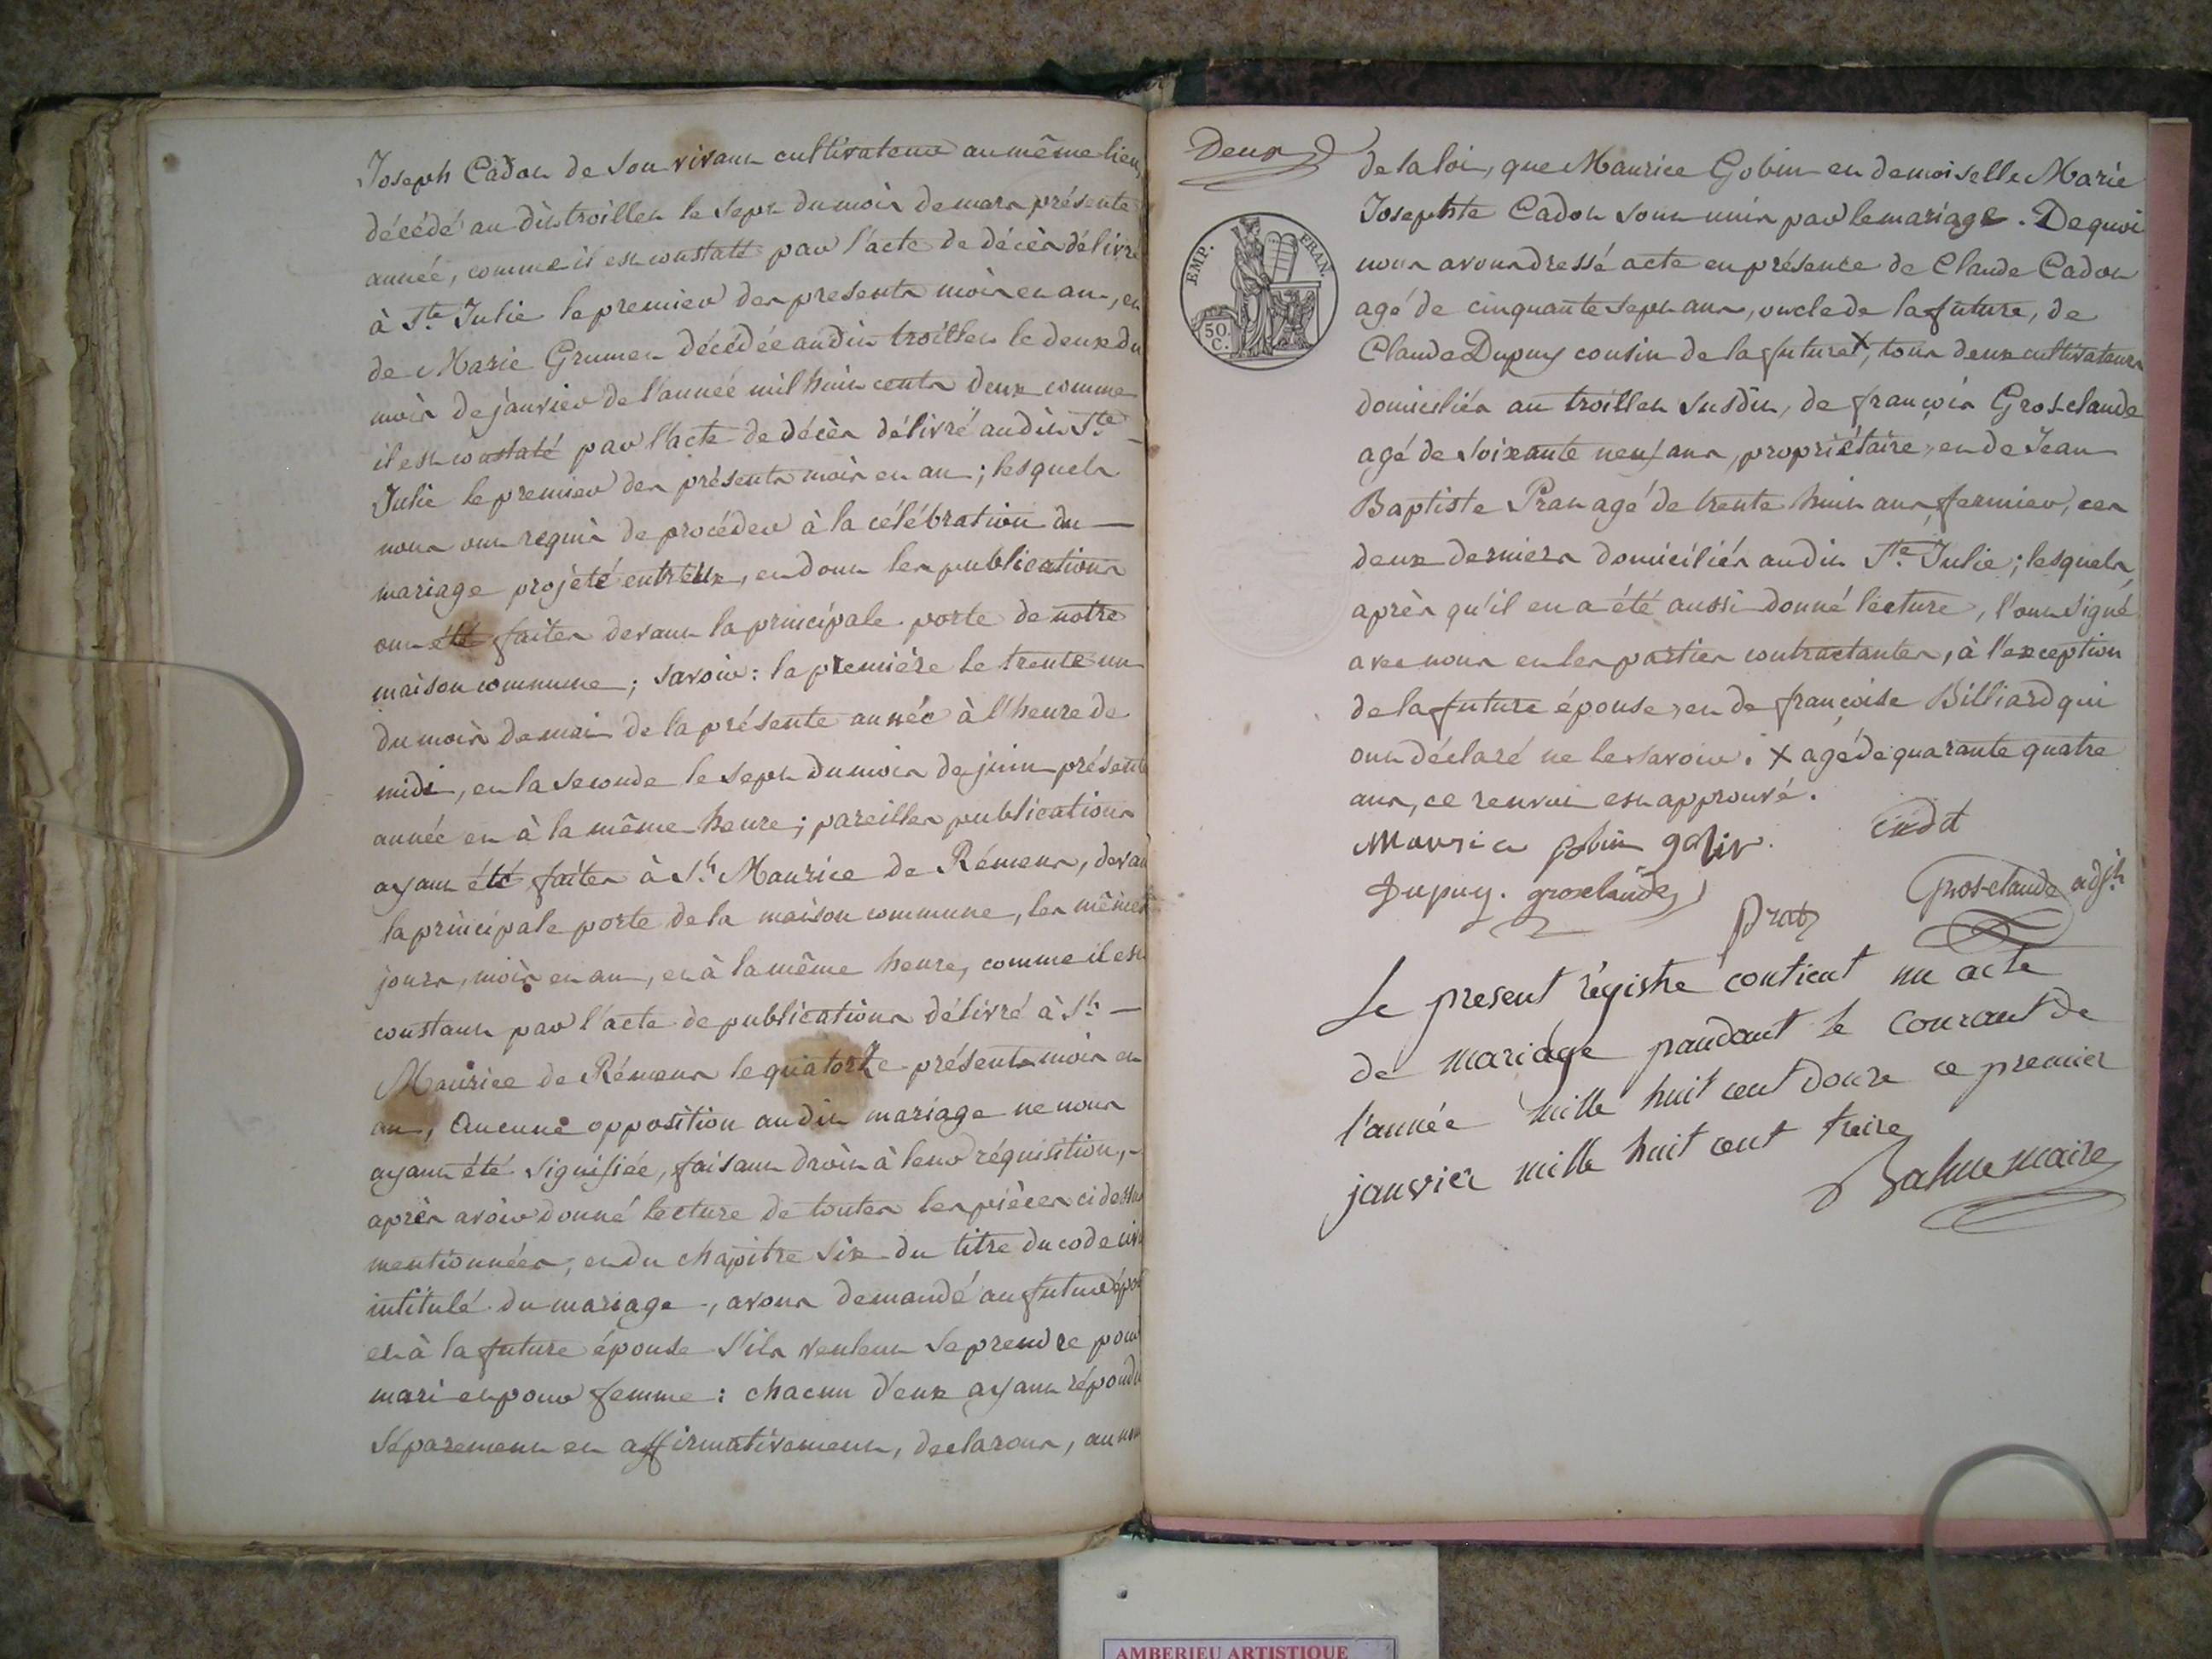 Joseph Cadot de son vivant cultivateur au même lieu,
décédé au dit troillet le sept du mois de mars présente
année, comme il est constaté par l'acte de décès délivré
à Ste Julie le premier des presents mois et an, et
de Marie Grumet décédée au dit troillet le deux du
mois de janvier de l'année mil huit cents deux comme
il est constaté par l'acte de décès délivré au dit Ste
Julie le premier des présents mois et an; lesquels
nous ont requis de procéder à la célébration du
mariage projeté entr'eux, et dont les publications
ont été faites devant la principale porte de notre
maison commune; savoir: la première le trente un
du mois de mai de la présente année à l'heure de
midi, et la seconde le sept du mois de juin présente
année et à la même heure; pareilles publications
ayant été faites à St Maurice de Rémens, devant
la principale porte de la maison commune, les mêmes
jours, mois et an, et à la même heure, comme il est
constant par l'acte de publications délivré à St
Maurice de Rémens le quatorze présents mois et
an, Aucune opposition au dit mariage ne nous
ayant été signifiée, faisant droit à leur réquisition,
après avoir donné lecture de toutes les pièces ci dessus
mentionnées, et du chapitre six du titre du code civil
intitulé du mariage, avons demandé au futur époux
et à la future épouse s'ils veulent se prendre pour
mari et pour femme: chacun d'eux ayant répondu
séparement et affirmativement, declarons, au nom
Deux
de la loi, que Maurice Gobin et demoiselle Marie
Josephte Cadot sont unis par le mariage. De quoi
nous avons dressé acte en présence de Claude Cadot
agé de cinquante sept ans, oncle de la future, de
Claude Dupuy cousin de la future X, tous deux cultivateurs
domiciliés au troillet susdit, de françois Grosclaude
agé de soixante neuf ans, propriétaire, et de Jean
Baptiste Prat agé de trente huit ans, fermier, ces
deux derniers domiciliés au dit Ste Julie; lesquels,
après qu'il en a été aussi donné lecture, l'ont signé
avec nous et les parties contractantes, à l'exception
de la future épouse, et de françoise Billiard qui
ont déclaré ne le savoir. X agé de quarante quatre
ans, ce renvoi est approuvé.
EMP. FRAN.
50. C.
Mouric gobin gobin.
Dupuy. groxclaude
Prat
Gros-claude adjt
Le present régistre contient un acte
de mariage pandant le Courant de
l'année mille huit cent douze ce premier
janvier mille huit cent treize
Balme maire
AMBERIEU ARTISTIQUE